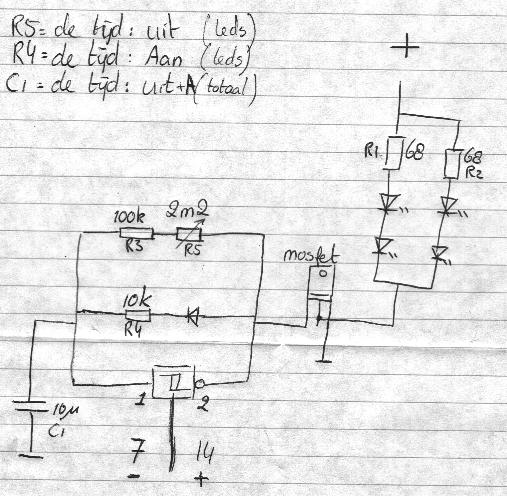 R5 = de tijd: uit (leds)
R4 = de tijd: Aan (leds)
C1 = de tijd: uit+A (totaal)
+
R1 68
68
R2
100k
R3
2m2
R5
mosfet
10k
R4
1
2
10µ
C1
7
14
-
+